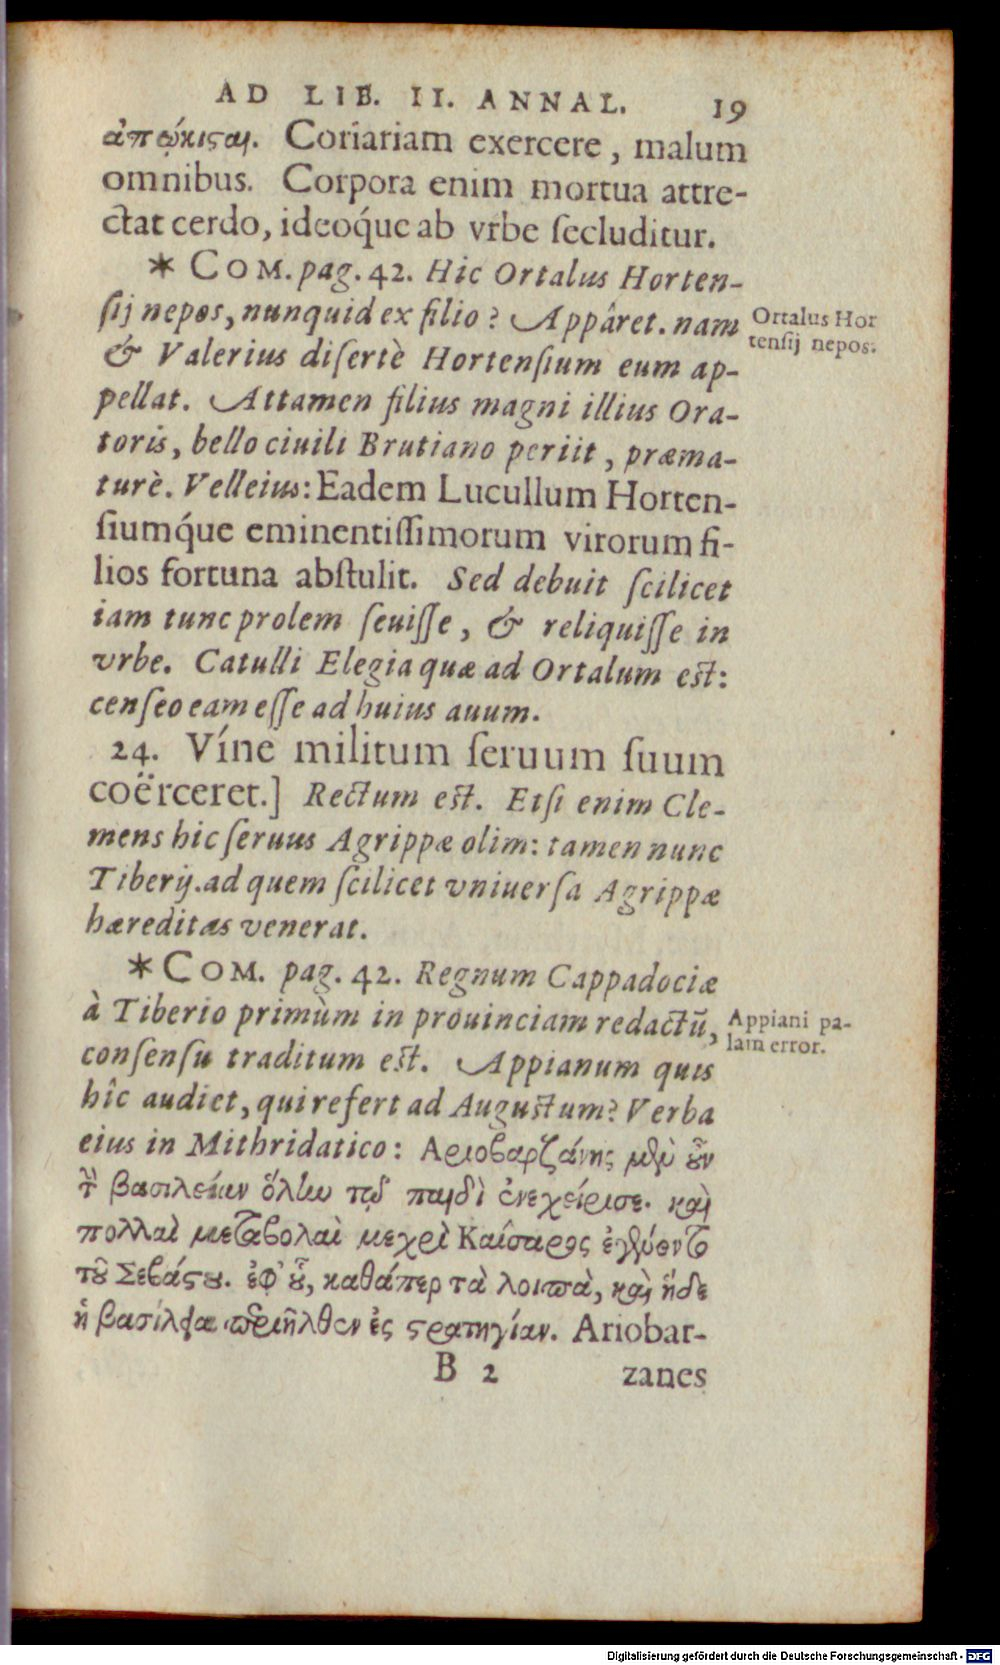 AD LIB. II. ANNAL. 19
ἀπῴκισαι. Coriariam exercere, malum
omnibus. Corpora enim mortua attre-
ctat cerdo, ideoq́ue ab vrbe ſecluditur.
* COM. pag. 42. Hic Ortalus Horten-
ſij nepos, nunquid ex filio? Appâret. nam
& Valerius diſertè Hortenſium eum ap-
pellat. Attamen filius magni illius Ora-
toris, bello ciuili Brutiano periit, præma-
turè. Velleius: Eadem Lucullum Horten-
ſiumq́ue eminentiſſimorum virorum fi-
lios fortuna abſtulit. Sed debuit ſcilicet
iam tunc prolem ſeuiſſe, & reliquiſſe in
vrbe. Catulli Elegia quæ ad Ortalum est:
cenſeo eam eſſe ad huius auum.
Ortalus Hor
tenſij nepos.
24. Víne militum ſeruum ſuum
coërceret.] Rectum est. Etſi enim Cle-
mens hic ſeruus Agrippæ olim: tamen nunc
Tiberij. ad quem ſcilicet vniuerſa Agrippæ
hæreditas venerat.
* COM. pag. 42. Regnum Cappadociæ
à Tiberio primùm in prouinciam redactũ,
conſenſu traditum est. Appianum quis
hîc audiet, qui refert ad Augustum? Verba
eius in Mithridatico: Αριοβαρζάνης μὲν οὖν
τὴν βασιλείαν ὅλην τῷ παιδὶ ἐνεχείρισε. καὶ
πολλαὶ μεταβολαὶ μεχρὶ Καίσαρος ἐγένοντο
τοῦ Σεβάστου. ἐφ᾽ οὗ, καθάπερ τὰ λοιπὰ, καὶ ἥδε
ἡ βασίλεια περιῆλθεν ἐς στρατηγίαν. Ariobar-
Appiani pa-
lam error.
B 2 zanes
Digitalisierung gefördert durch die Deutsche Forschungsgemeinschaft - DFG